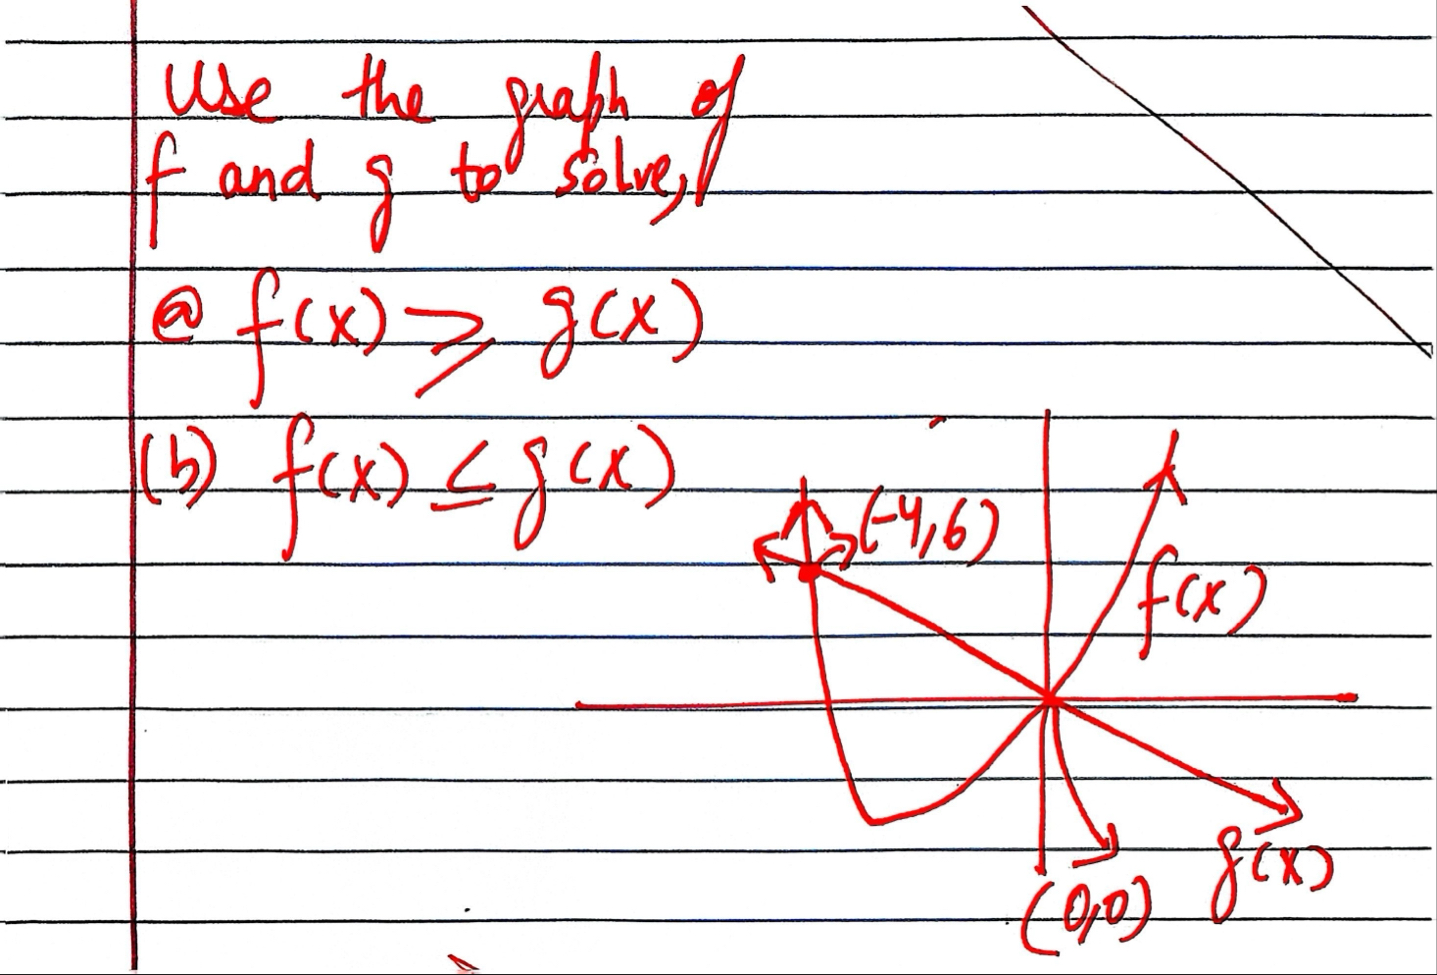 Use the graph of
f and g to solve,
@ f(x) ≥ g(x)
(b) f(x) ≤ g(x)
(-4,6)
f(x)
g(x)
(0,0)